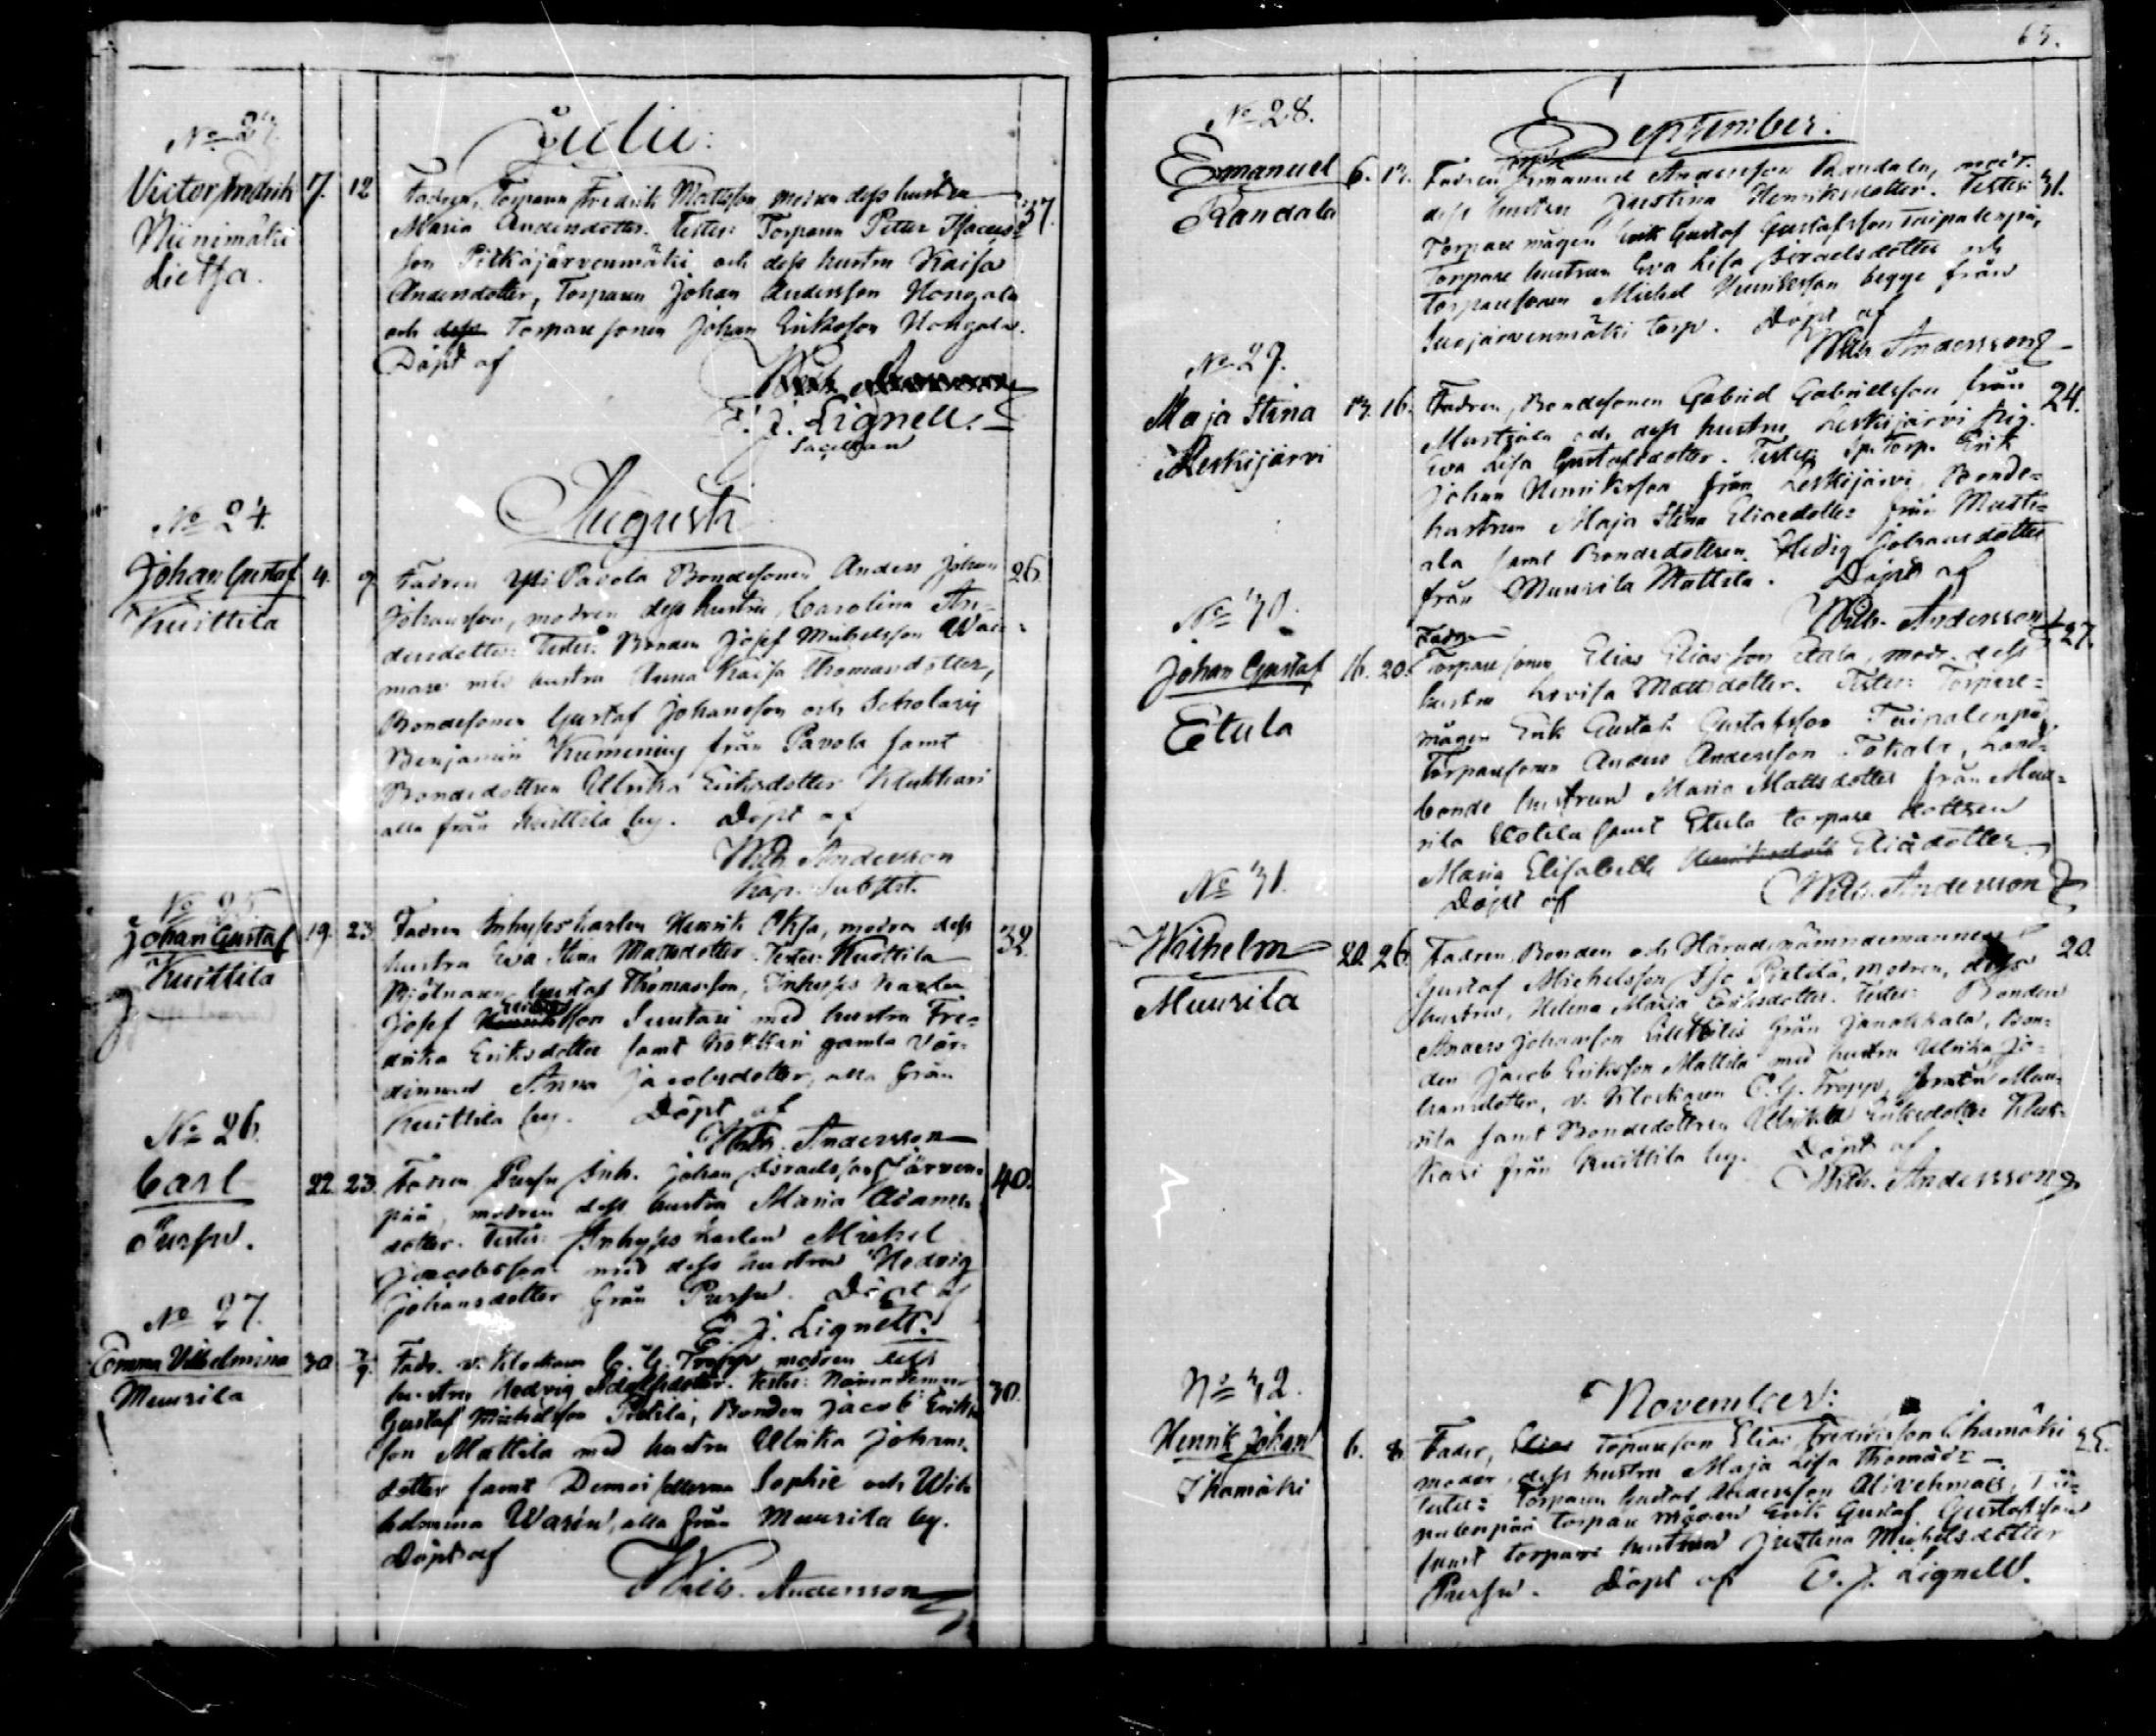 Julii:
No 23.
Victor Fredrik 7. 12
Niinimäki
Lietsa.
Fadren, Torparen Fredrik Mattsson, modren dess hustru 37.
Maria Andersdotter. Testes: Torparen Petter Isacs=
son Pitkäjärvenmäki och dess hustru Kaisa
Andersdotter, Torparen Johan Andersson Hongola
och dess Torparesonen Johan Eriksson Hongola.
Döpt af
E. J. Lignell.
Sacellan
Augusti
No 24.
Johan Gustaf 4. 9
Kuittila
Fadren Yli Pavola Bondesonen Anders Johan 26
Johansson, modren dess hustru, Carolina An=
dersdotter. Testes: Bonden Josef Michelsson
med hustru Anna Kaisa Thomasdotter,
Bondesonen Gustaf Johansson och
Benjamin från Pavola samt
Bondedottren Ulrika Eriksdotter Klukkari
alla från Kuittila by. Döpt af
Wilh. Andersson
Kap. Subst.
No 25
Johan Gustaf 19. 23
Kuittila
Fadren Inhyseskarlen Henrik Oksa, modren dess 32.
hustru Eva Stina Mattsdotter. Testes: Kuittila
Mjölnaren Gustaf Thomasson, Inhyses karlen
Josef Suutari med hustru Fre=
drika Eriksdotter samt gamla Vär=
dinnan Anna Jacobsdotter, alla från
Kuittila by. Döpt af
Wilh. Andersson
No 26.
Carl 22. 23.
Pursu.
Fadren Pursu Inh. Johan Israelsson Järven= 40.
pää, modren dess hustru Maria Adams=
dotter. Testes: Inhyses karlen Michel
Jacobsson med dess hustru Hedvig
Johansdotter från Pursu. Döpt af
E. J. Lignell.
No 27.
Emma Vilhelmina 30
Muurila
Fadr. v. Klockaren C. G. Tropp, modren dess
hustru Hedvig Adolfsdotter. Testes: Nämndeman 30.
Gustaf Michelsson Pietilä, Bonden Jacob Eriks
son Mattila med hustru Ulrika Johans=
dotter samt Demoisellerna Sophie och Wil=
helmina Warén, alla från Muurila by.
Döpt af
Wilh. Andersson
65.
September.
No 28.
Emanuel 6. 13.
Kandala
Fadren Emanuel Andersson Kandala, modr. 31.
dess hustru Justina Henriksdotter. Testes:
Torpare mågen Erik Gustaf Gustafsson Taipalenpä,
Torpare hustrun Eva Lisa Israelsdotter och
Torparesonen Michel Henriksson begge från
Suojärvenmäki torp. Döpt af
Wilh. Andersson
No 29.
Maja Stina 13. 16.
Leskijärvi
Fadren, Bondesonen Gabriel Gabrielsson från 24.
Mustiala och dess hustru, Leskijärvi
Eva Lisa Gustafsdotter. Testes: Sp. Torp. Erik
Johan Henriksson från Leskijärvi, Bonde=
hustrun Maja Stina Eliaedotter från Musti=
ala samt Bondedottren Hedvig Johansdotter
från Muurila Mattila. Döpt af
Wilh. Andersson
No 30.
Johan Gustaf 16. 20.
Etula
Fadren
Torparesonen Elias Eliasson Etula, modr. dess 27.
hustru Lovisa Mattsdotter. Testes: Torpare=
mågen Erik Gustaf Gustafsson Taipalenpä,
Torparesonen Anders Andersson Tokala, Land=
bonde hustrun Maria Mattsdotter från Muu=
rila samt Etula torpare dottren
Maria Elisabeth Eliaedotter
Döpt af Wilh. Andersson
No 31.
Wilhelm 20. 26.
Muurila
Fadren, Bonden och Häradsnämndemannen 20
Gustaf Michelsson Iso Pietilä, modren, dess
hustru, Helena Maria Eriksdotter. Testes: Bonden
Anders Johansson från Janakkala, Bon=
den Jacob Eriksson Mattila med hustru Ulrika Jo=
hansdotter, v. Klockaren C. G. Tropp, Muu=
rila samt Bondedottren Ulrika Eriksdotter Kluk=
kari från Kuittila by. Döpt af
Wilh. Andersson
November:
No 32.
Henrik Johan 6. 8
Ihamäki
Fader, Torparesson Elias Fredriksson Ihamäki 25.
moder, dess hustru Maja Lisa Thomädr.
Testes: Torparen Gustaf Andersson Alivehmais, Tai=
palenpää torpare mågen Erik Gustaf Gustafsson
samt torpare hustrun Justina Michelsdotter
Pursu. Döpt af E. J. Lignell.